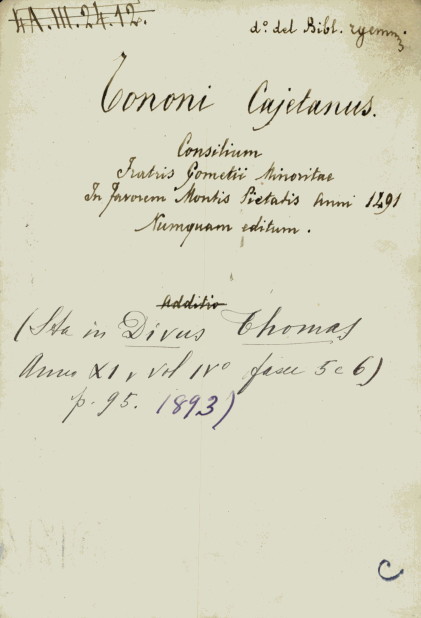 4A.III.24.12.
d.º del Bibl.
Tononi Cajetanus.
Consilium
Fratris Gometii Minoritae
In favorem Montis Pietatis Anni 1491
Numquam editum.
Additio
(Sta in Divus Thomas
Annus XI, vol IVº fasc 5 e 6)
p. 95. 1893)
C